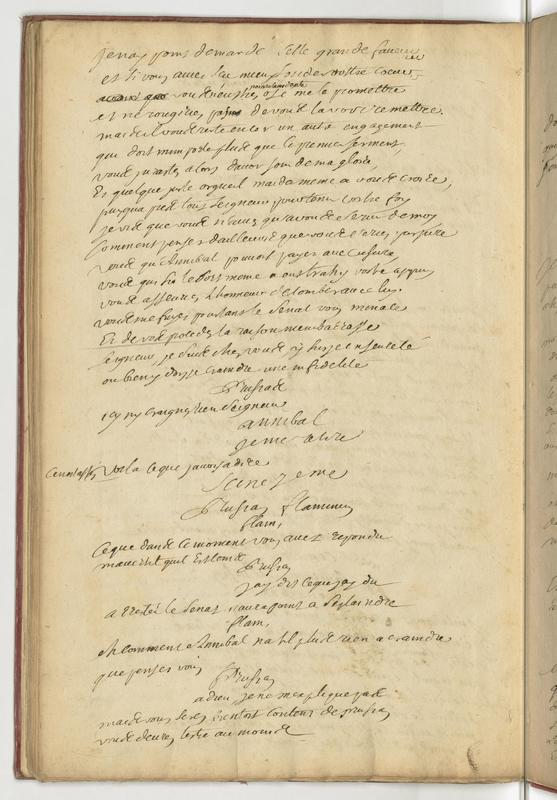 je nay point demandé cette grande faveur
et si vous aviez lu mieux sonder vostre coeur
vous neussiez osé me le promettre
et ne rougiriez point de vous la voir remettre
mais il vous reste encor un autre engagement
qui doit m'importer plus que le premier serment,
vous jurastes alors d'avoir soin de ma gloire
Et quelque juste orgueil mesme a vous croire,
puisque seigneur pour tenir vostre foy
je vis que vous n'aviez qu'a vous de moy
Comment penser d'ailleurs que vous seriez parjure
vous qu'Annibal pouvoit payer avec usure
vous qui si le sort mesme eust trahy vostre appuy
vous asseuriez l'honneur de tomber avec luy.
vous me fuyez pourtant le Senat vous menace
Et de vos procedez la raison m'embarasse
seigneur, je suis chez vous y suis je en seureté
ou bien y dois je craindre une infidelité
Prusias
icy ny craignez rien Seigneur
annibal
je me retire
C'en est assez voila ce que j'avois a dire
Scene
Prusias flaminius
flam,
Ce que dans ce moment vous avez repondu
m'avertit qu'il est temps
Prusias
j'ay dit ce que j'ay du
arrestez le Senat n'aura point a se plaindre
flam,
eh comment Annibal n'a t il plus rien a craindre
que pensez vous
Prusias
adieu je ne m'explique pas
mais vous serez bientost content de prusias
vous devez l'estre au moins